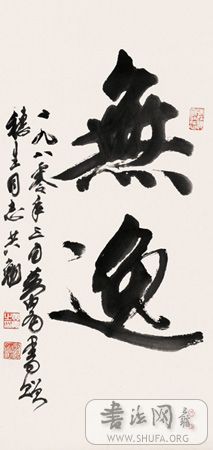 無逸
一九八零年三月書贈
同志共勉
書法网
WWW.SHUFA.ORG